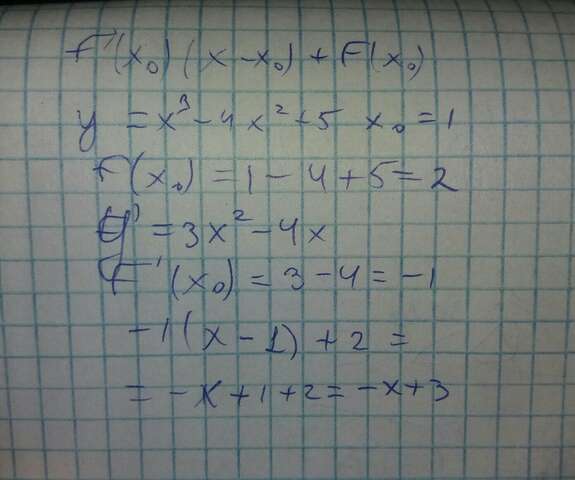 F'(x₀)(x-x₀)+F(x₀)
y = x³-4x²+5 x₀=1
F(x₀)=1-4+5=2
y'=3x²-4x
F'(x₀)=3-4=-1
-1(x-1)+2=
=-x+1+2=-x+3